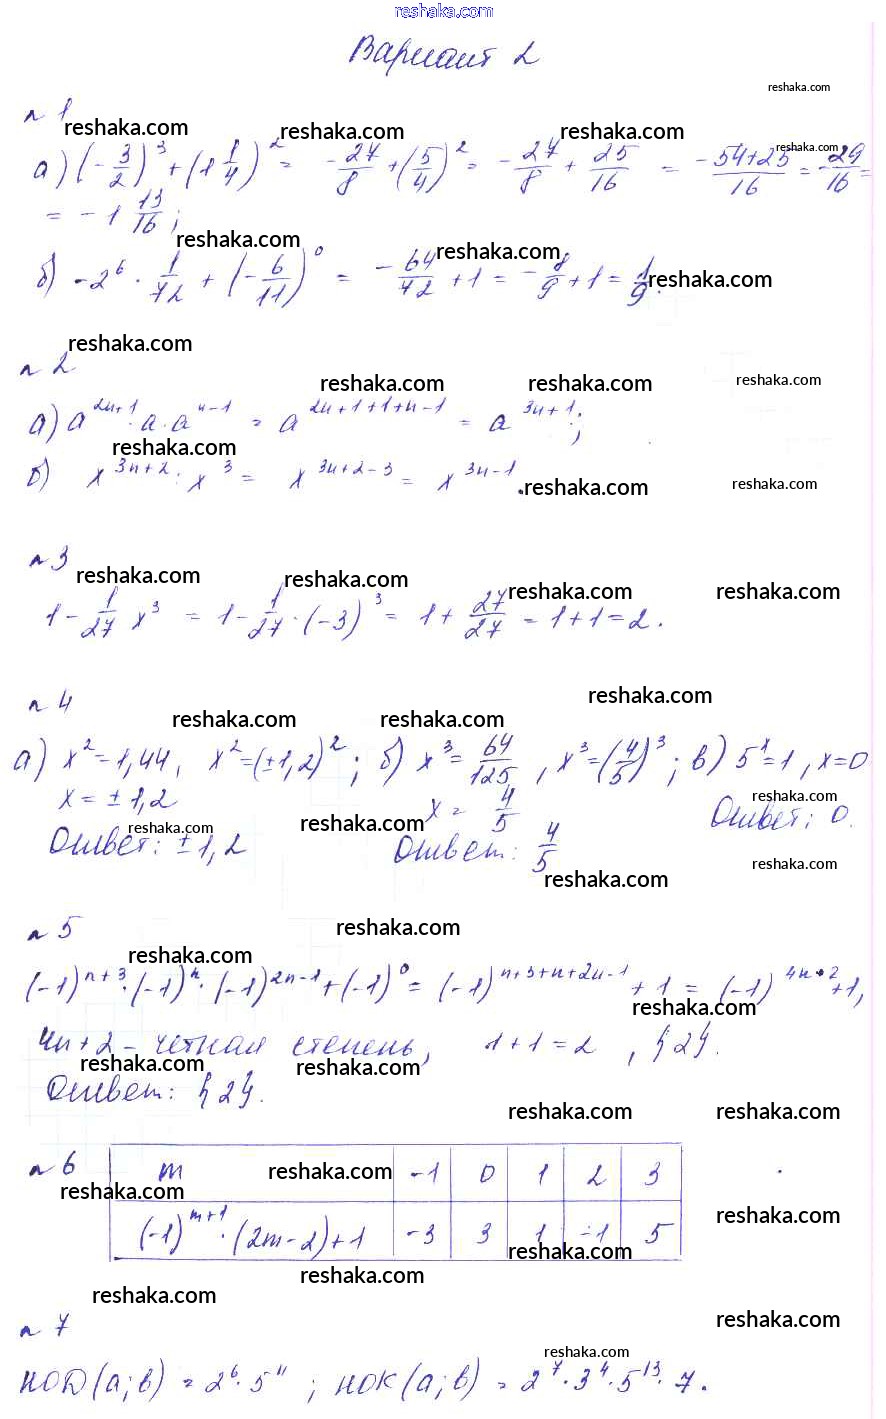 reshaka.com
Вариант 2
reshaka.com
n 1
reshaka.com reshaka.com reshaka.com reshaka.com
а) (-3/2)^3 + (1 1/4)^2 = -27/8 + (5/4)^2 = -27/8 + 25/16 = -54+25/16 = -29/16 =
= -1 13/16;
reshaka.com reshaka.com
б) -2^6 · 1/72 + (-6/11)^0 = -64/72 + 1 = -8/9 + 1 = 1/9.
reshaka.com
reshaka.com
n 2
reshaka.com reshaka.com reshaka.com
а) a^(2n+1) · a · a^(n-1) = a^(2n+1+1+n-1) = a^(3n+1);
reshaka.com
б) x^(3n+2) : x^3 = x^(3n+2-3) = x^(3n-1).
reshaka.com reshaka.com
n 3
reshaka.com reshaka.com reshaka.com reshaka.com
1 - 1/27 x^3 = 1 - 1/27 · (-3)^3 = 1 + 27/27 = 1+1=2.
reshaka.com
n 4
reshaka.com reshaka.com
а) x^2 = 1,44, x^2 = (±1,2)^2; б) x^3 = 64/125, x^3 = (4/5)^3; в) 5^x = 1, x=0
x = ±1,2 x = 4/5 Ответ: 0.
reshaka.com reshaka.com reshaka.com
Ответ: ±1,2 Ответ: 4/5
reshaka.com reshaka.com
n 5
reshaka.com
reshaka.com
(-1)^(n+3) · (-1)^n · (-1)^(2n-1) + (-1)^0 = (-1)^(n+3+n+2n-1) + 1 = (-1)^(4n+2) + 1,
reshaka.com
4n+2 - четная степень, 1+1=2, {2}.
reshaka.com reshaka.com
Ответ: {2}.
reshaka.com reshaka.com
n 6
m reshaka.com -1 0 1 2 3
reshaka.com
(-1)^(m+1) · (2m-2)+1 -3 3 1 -1 5
reshaka.com
reshaka.com
reshaka.com
reshaka.com reshaka.com
n 7
reshaka.com
НОД(a;b) = 2^6 · 5^11; НОК(a;b) = 2^7 · 3^4 · 5^13 · 7.